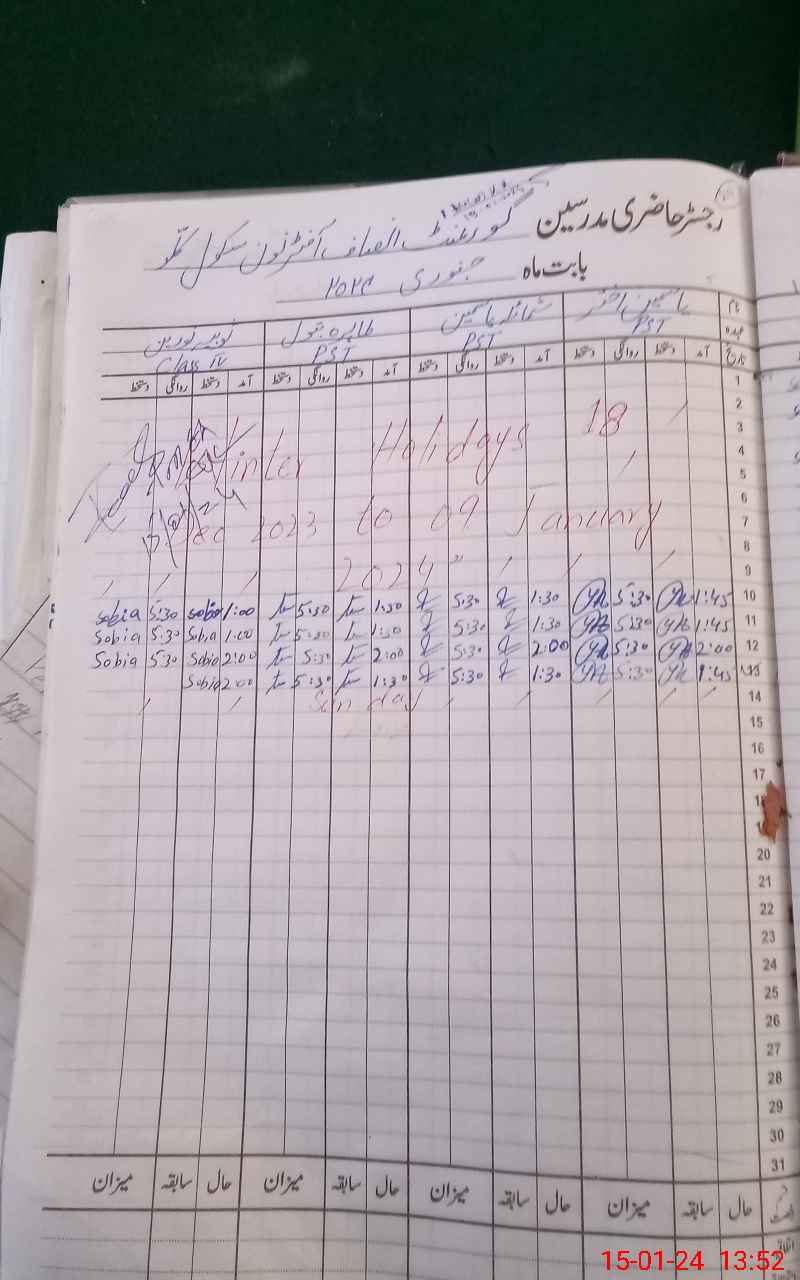 رجسٹر حاضری مدرسین گورنمنٹ انصاف آفٹرنون سکول
بابت ماہ جنوری ۲۰۲۴
نام یاسمین اختر شمائلہ یاسمین طاہرہ بتول ثوبیہ نورین
عہدہ PST PST PST Class IV
تاریخ آمد دستخط روانگی دستخط آمد دستخط روانگی دستخط آمد دستخط روانگی دستخط آمد دستخط روانگی دستخط
1
2
3
Winter Holidays 18
4
5
6
Dec 2023 to 09 January
7
8
2024
9
sobia 5:30 sobia 1:00 5:30 1:30 5:30 1:30 5:30 1:45 10
Sobia 5:30 Sobia 1:00 5:30 1:30 5:30 1:30 5:30 1:45 11
Sobia 5:30 Sobia 2:00 5:30 2:00 5:30 2:00 5:30 2:00 12
Sobia 2:00 5:30 1:30 5:30 1:30 5:30 1:45 13
Sunday 14
15
16
17
18
19
20
21
22
23
24
25
26
27
28
29
30
31
حال سابقہ میزان حال سابقہ میزان حال سابقہ میزان حال سابقہ میزان
15-01-24 13:52